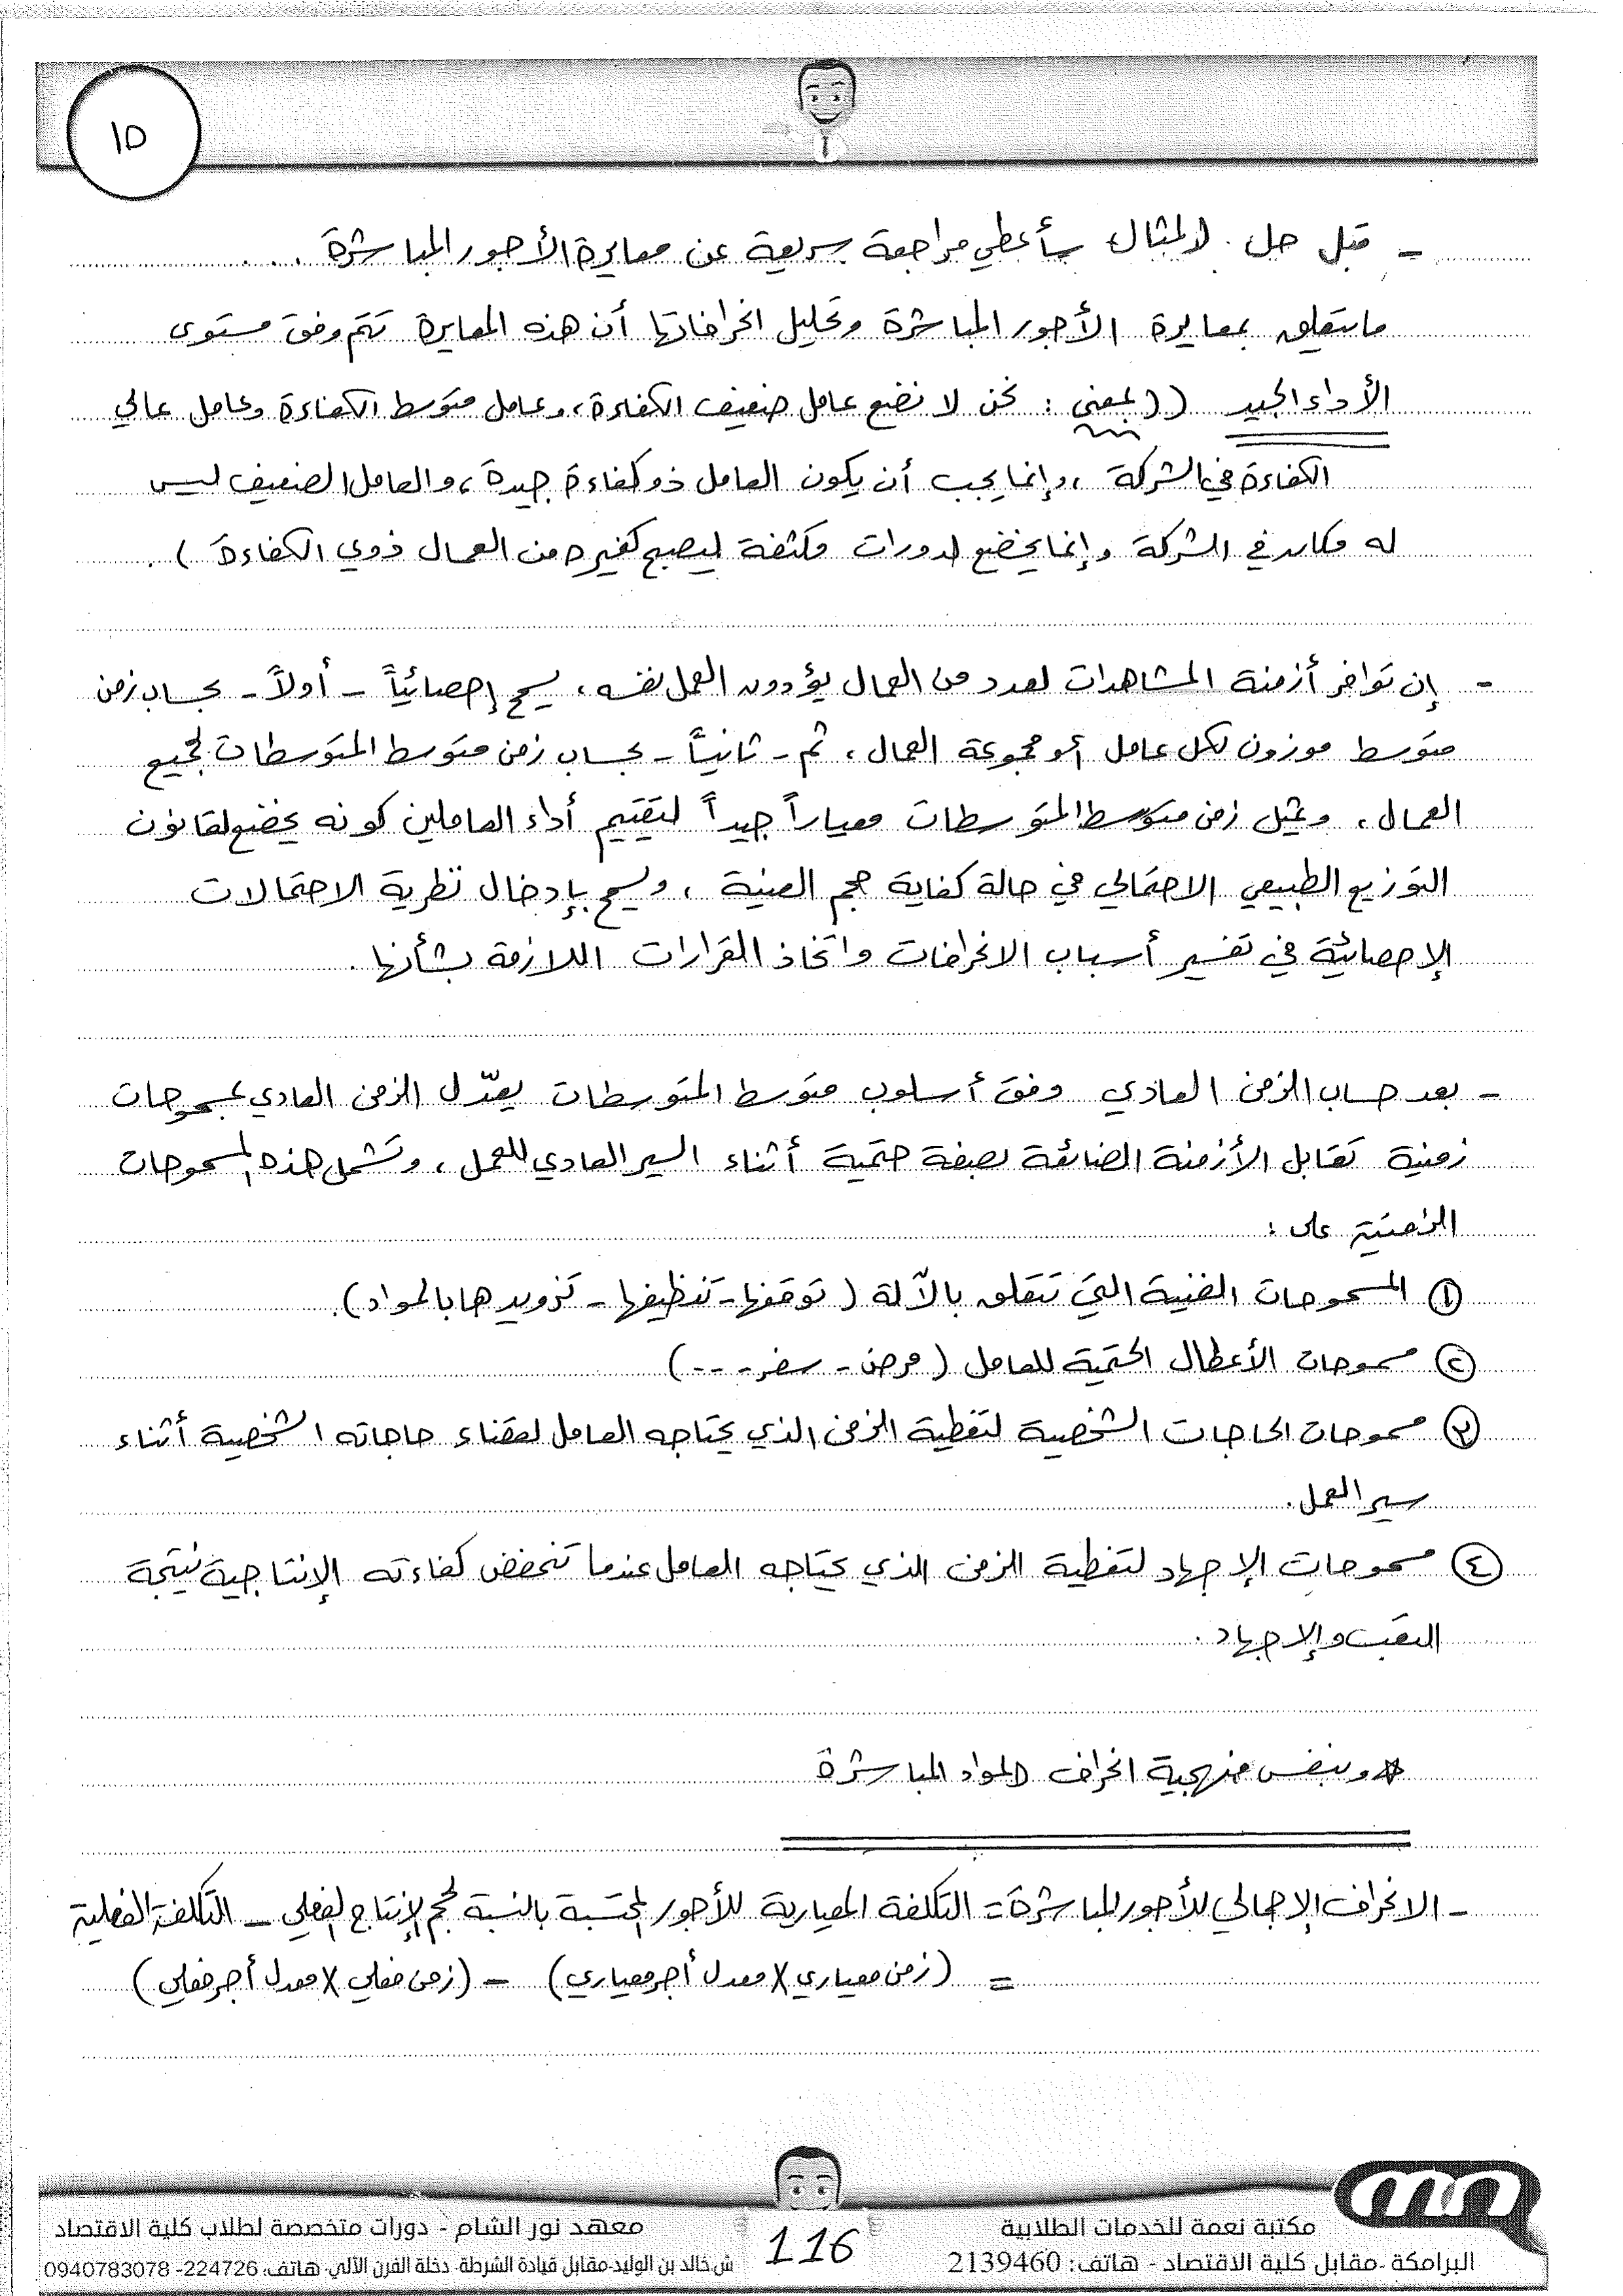 ١٥
- قبل حل المثال سأعطي مراجعة سريعة عن معايرة الأجور المباشرة ...
ما يتعلق بمعايرة الأجور المباشرة وتحليل انحرافاتها أن هذه المعايرة تتم وفق مستوى
الأداء الجيد (( بمعنى : نحن لا نضع عامل ضعيف الكفاءة، وعامل متوسط الكفاءة وعامل عالي
الكفاءة في الشركة ، وإنما يجب أن يكون العامل ذو كفاءة جيدة ، والعامل الضعيف ليس
له مكان في الشركة وإنما يخضع لدورات مكثفة ليصبح كغيره من العمال ذوي الكفاءة ) .
- إن توافر أزمنة المشاهدات لعدد من العمال يؤدون العمل نفسه ، يسمح إحصائياً - أولاً - بحساب زمن
متوسط موزون لكل عامل أو مجموعة العمال ، ثم - ثانياً - بحساب زمن متوسط المتوسطات لجميع
العمال ، ويمثل زمن متوسط المتوسطات معياراً جيداً لتقييم أداء العاملين كونه يخضع لقانون
التوزيع الطبيعي الاحتمالي في حالة كفاية حجم العينة ، ويسمح بإدخال نظرية الاحتمالات
الإحصائية في تفسير أسباب الانحرافات واتخاذ القرارات اللازمة بشأنها .
- بعد حساب الزمن العادي وفق أسلوب متوسط المتوسطات يعدّل الزمن العادي بمسموحات
زمنية تقابل الأزمنة الضائعة بصفة حتمية أثناء السير العادي للعمل ، وتشمل هذه المسموحات
الزمنية على :
① المسموحات الفنية التي تتعلق بالآلة ( توقفها - تنظيفها - تزويدها بالمواد ) .
② مسموحات الأعطال الحتمية للعامل ( مرض - سفر - - - - )
③ مسموحات الحاجات الشخصية لتغطية الزمن الذي يحتاجه العامل لقضاء حاجاته الشخصية أثناء
سير العمل .
④ مسموحات الإجهاد لتغطية الزمن الذي يحتاجه العامل عندما تنخفض كفاءته الإنتاجية نتيجة
التعب والإجهاد .
* وبنفس منهجية انحراف المواد المباشرة
- الانحراف الإجمالي للأجور المباشرة = التكلفة المعيارية للأجور المحتسبة بالنسبة لحجم الإنتاج الفعلي - التكلفة الفعلية
= ( زمن معياري × معدل أجر معياري ) - ( زمن فعلي × معدل أجر فعلي )
مكتبة نعمة للخدمات الطلابية
البرامكة -مقابل كلية الاقتصاد - هاتف: 2139460
116
معهد نور الشام - دورات متخصصة لطلاب كلية الاقتصاد
ش.خالد بن الوليد-مقابل قيادة الشرطة- دخلة الفرن الآلي- هاتف: 224726- 0940783078